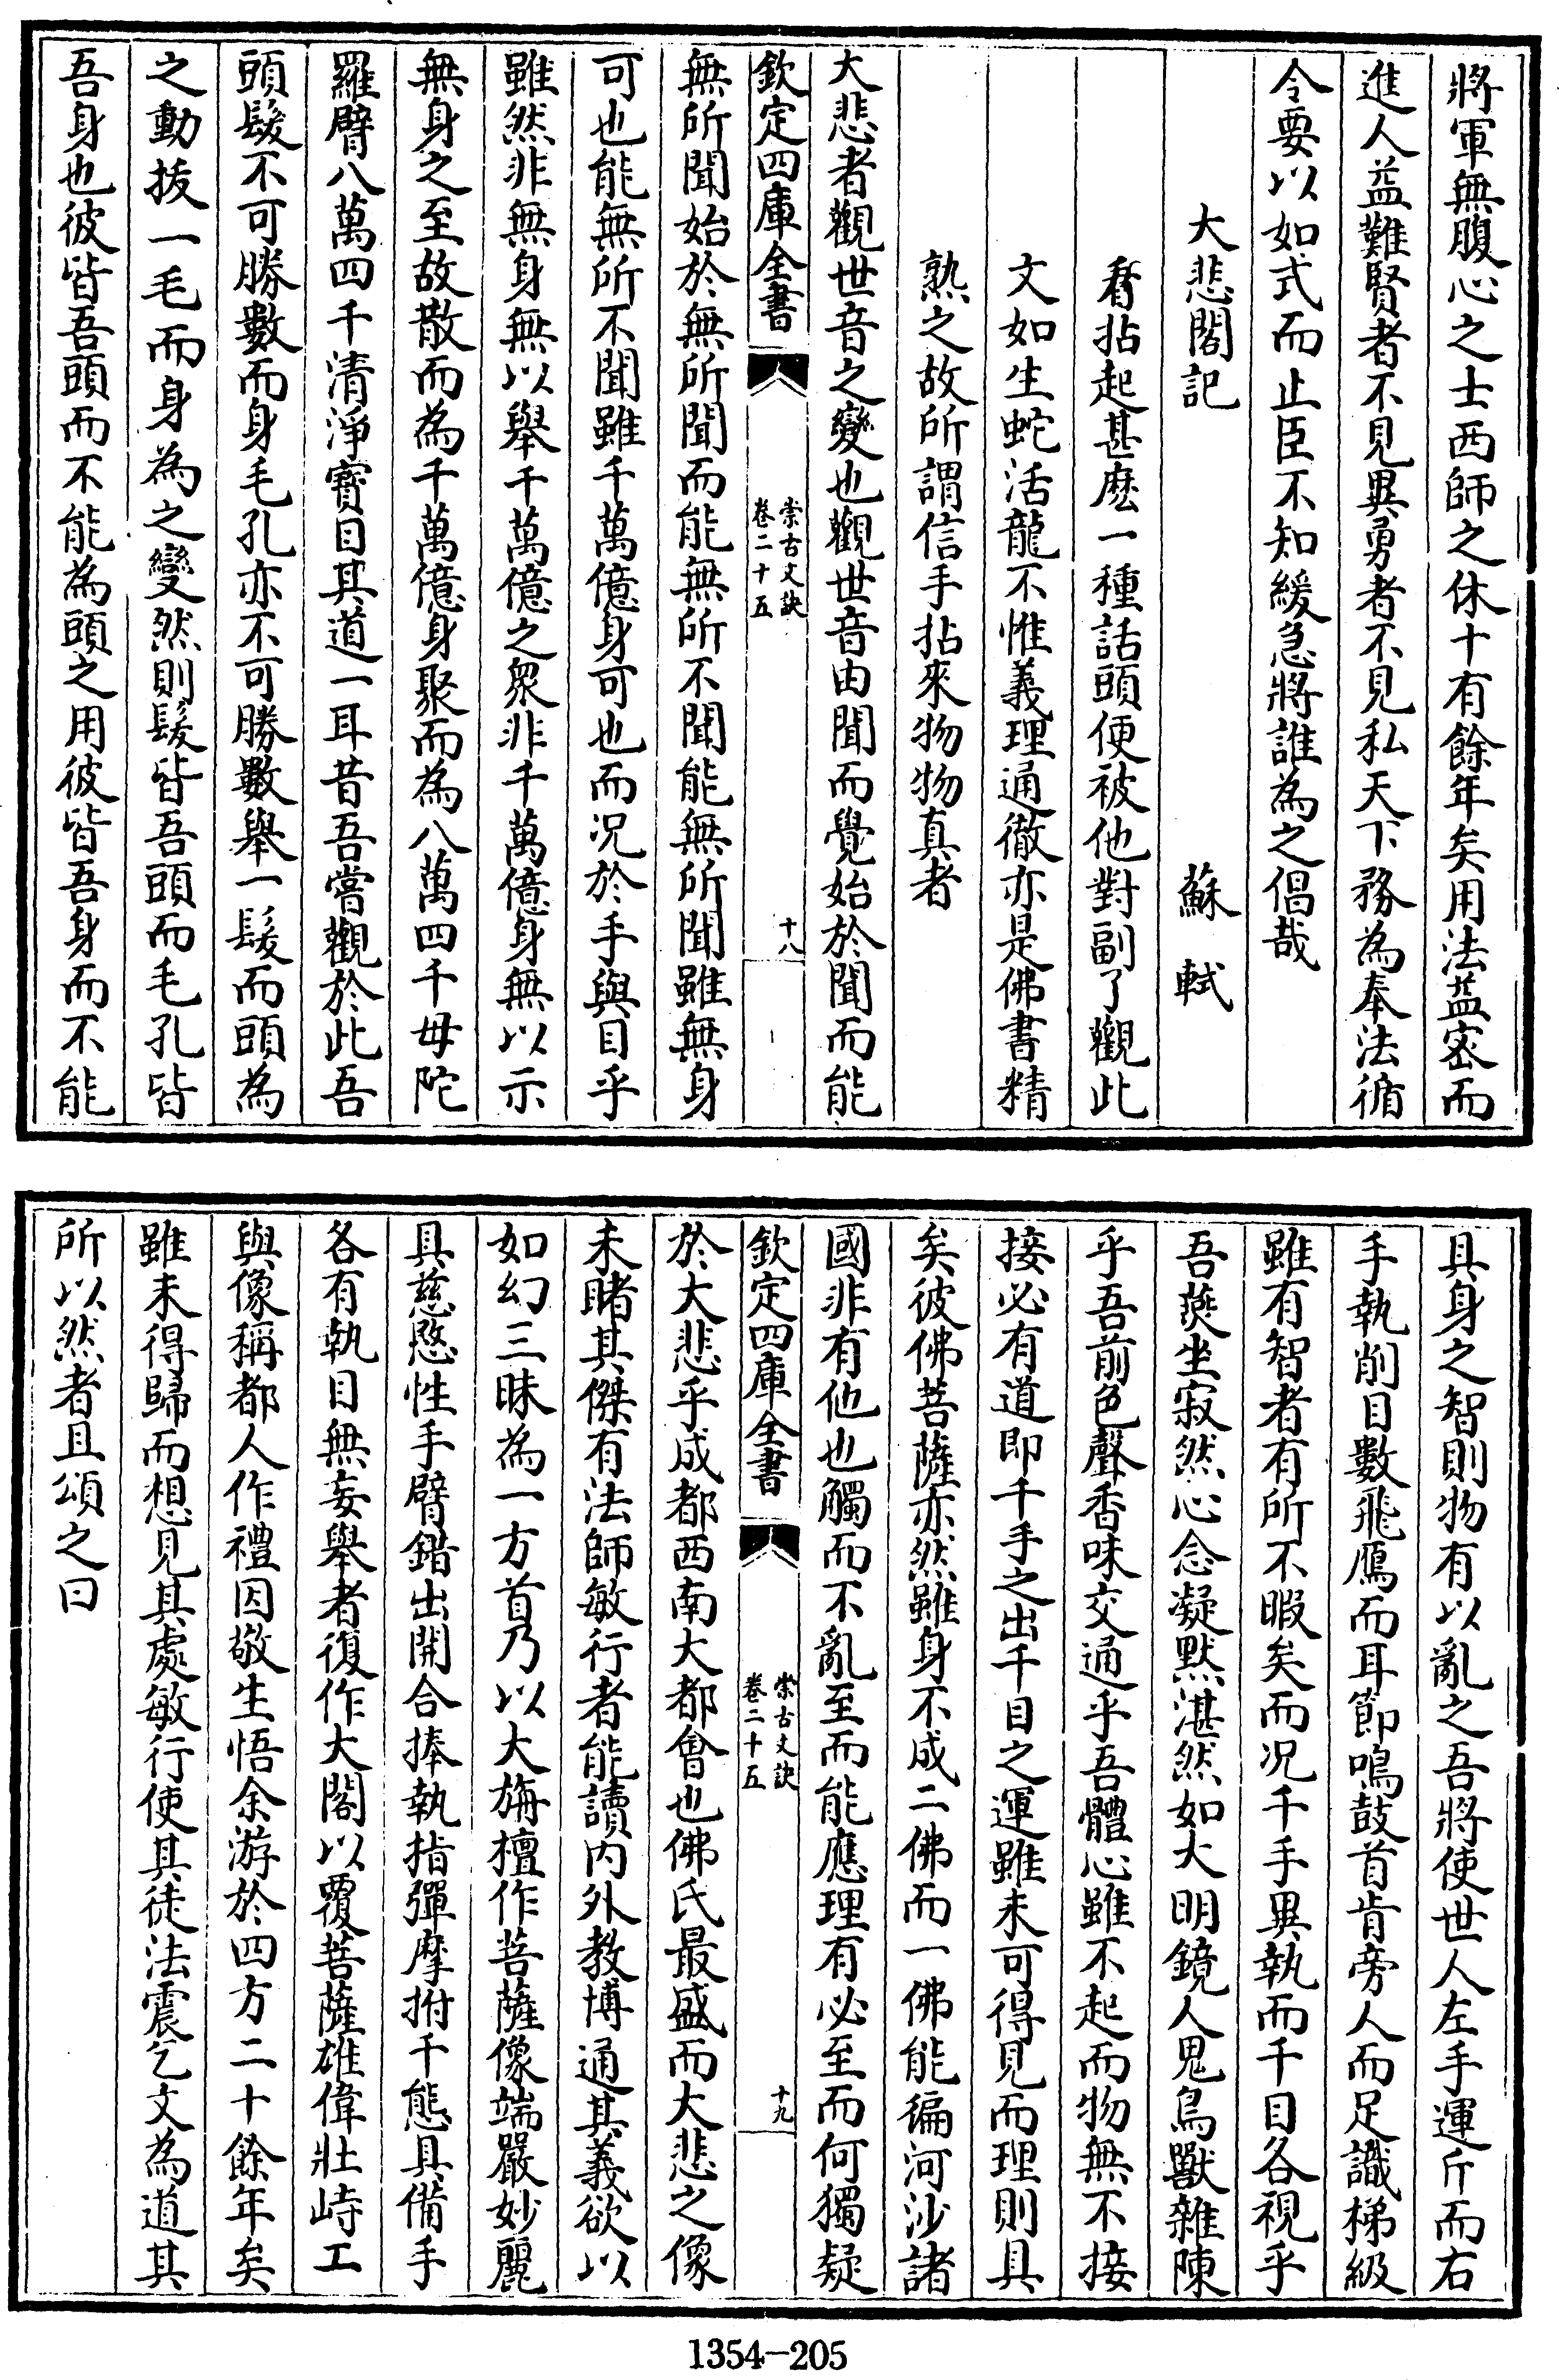 將軍無腹心之士西師之休十有餘年矣用法益密而
進人益難賢者不見異勇者不見私天下務為奉法循
令要以如式而止臣不知緩急將誰為之倡哉
大悲閣記 蘇軾
看拈起甚麽一種話頭便被他對副了觀此
文如生蛇活龍不惟義理通徹亦是佛書精
熟之故所謂信手拈來物物真者
大悲者觀世音之變也觀世音由聞而覺始於聞而能
欽定四庫全書 崇古文訣 卷二十五 十八
無所聞始於無所聞而能無所不聞能無所聞雖無身
可也能無所不聞雖千萬億身可也而况於手與目乎
雖然非無身無以舉千萬億之衆非千萬億身無以示
無身之至故散而為千萬億身聚而為八萬四千母陀
羅臂八萬四千清淨寳目其道一耳昔吾嘗觀於此吾
頭髮不可勝數而身毛孔亦不可勝數舉一髮而頭為
之動拔一毛而身為之變然則髮皆吾頭而毛孔皆
吾身也彼皆吾頭而不能為頭之用彼皆吾身而不能
具身之智則物有以亂之吾將使世人左手運斤而右
手執削目數飛鴈而耳節鳴鼓首肯旁人而足識梯級
雖有智者有所不暇矣而况千手異執而千目各視乎
吾燕坐寂然心念凝默湛然如大明鏡人鬼鳥獸雜陳
乎吾前色聲香味交通乎吾體心雖不起而物無不接
接必有道即千手之出千目之運雖未可得見而理則具
矣彼佛菩薩亦然雖身不成二佛而一佛能徧河沙諸
國非有他也觸而不亂至而能應理有必至而何獨疑
欽定四庫全書 崇古文訣 卷二十五 十九
於大悲乎成都西南大都會也佛氏最盛而大悲之像
未睹其傑有法師敏行者能讀内外教博通其義欲以
如幻三昧為一方首乃以大旃檀作菩薩像端嚴妙麗
具慈愍性手臂錯出開合捧執指彈摩拊千態具備手
各有執目無妄舉者復作大閣以覆菩薩雄偉壯峙工
與像稱都人作禮因敬生悟余游於四方二十餘年矣
雖未得歸而想見其處敏行使其徒法震乞文為道其
所以然者且頌之曰
1354-205